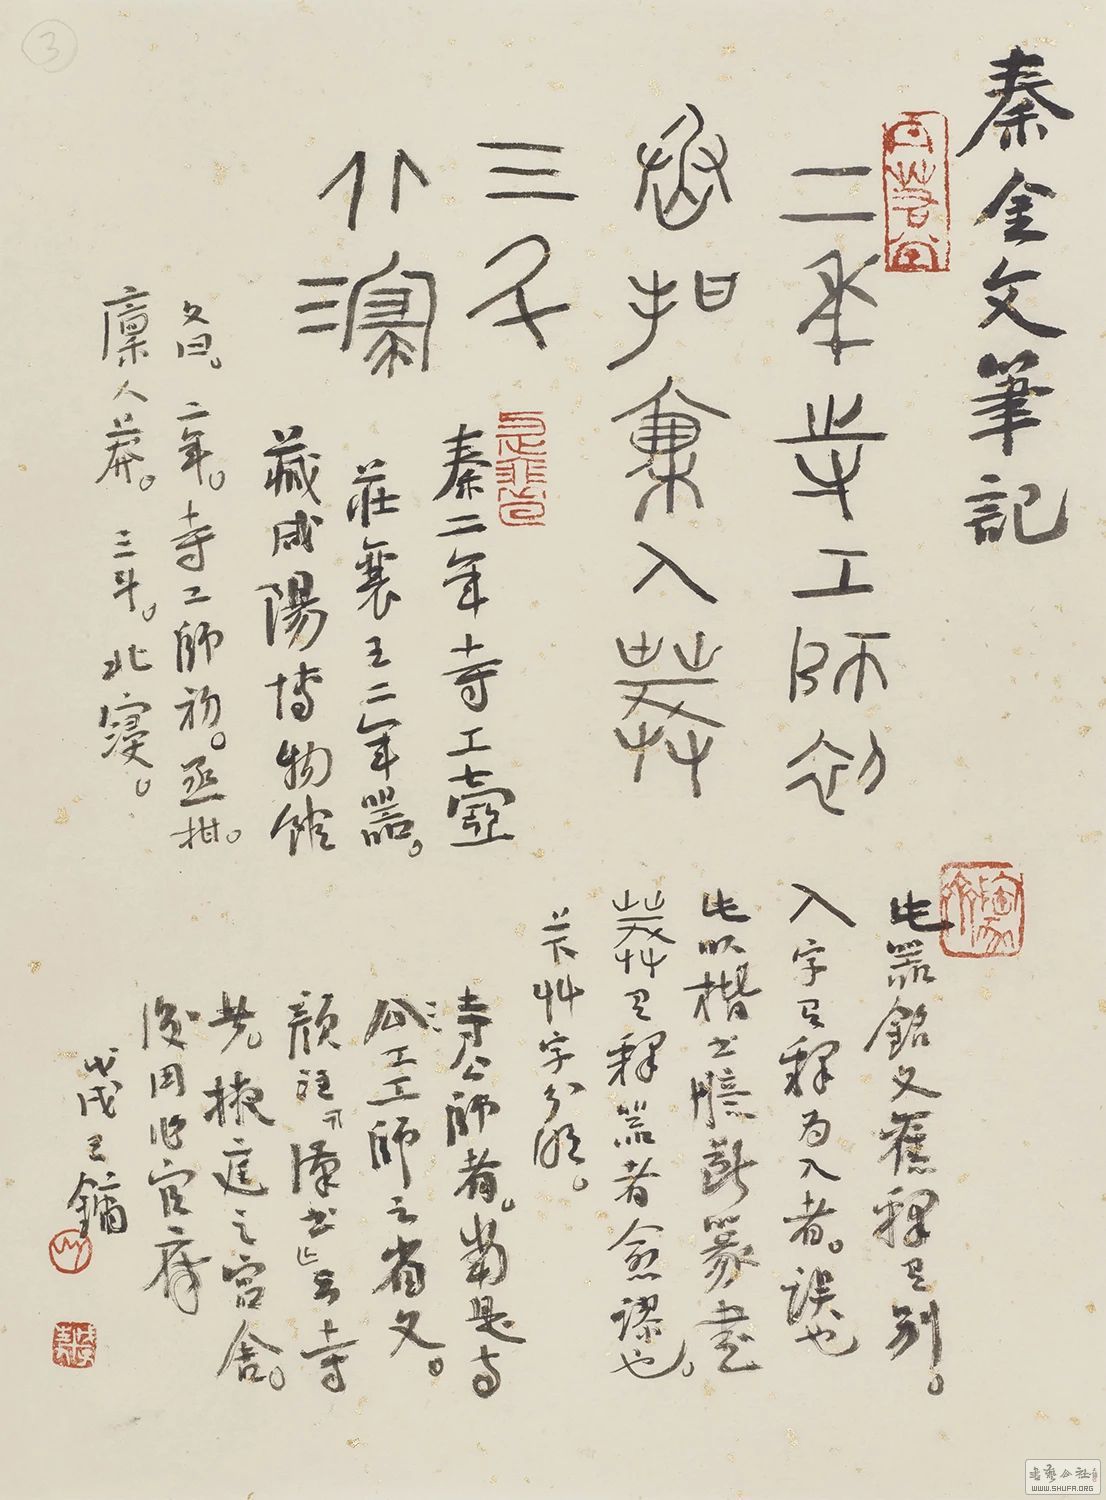 秦金文筆記
二年寺工師初
丞柑廩人莽
三斗
北寖
秦二年寺工壺
莊襄王二年器。
藏咸陽博物館
文曰。二年。寺工師初。丞柑。
廩人莽。三斗。北寖。
此器銘文舊釋有別。
入字有釋為入者。誤也
此以楷書臆斷篆書
莽有釋器者愈謬也。
茻艸字分明。
寺公師者。當是寺
公工工師之省文。
顏註漢書云寺
先掖庭之宮舍。
後用作官府
戊戌王鏞
3
WWW.SHUFA.ORG